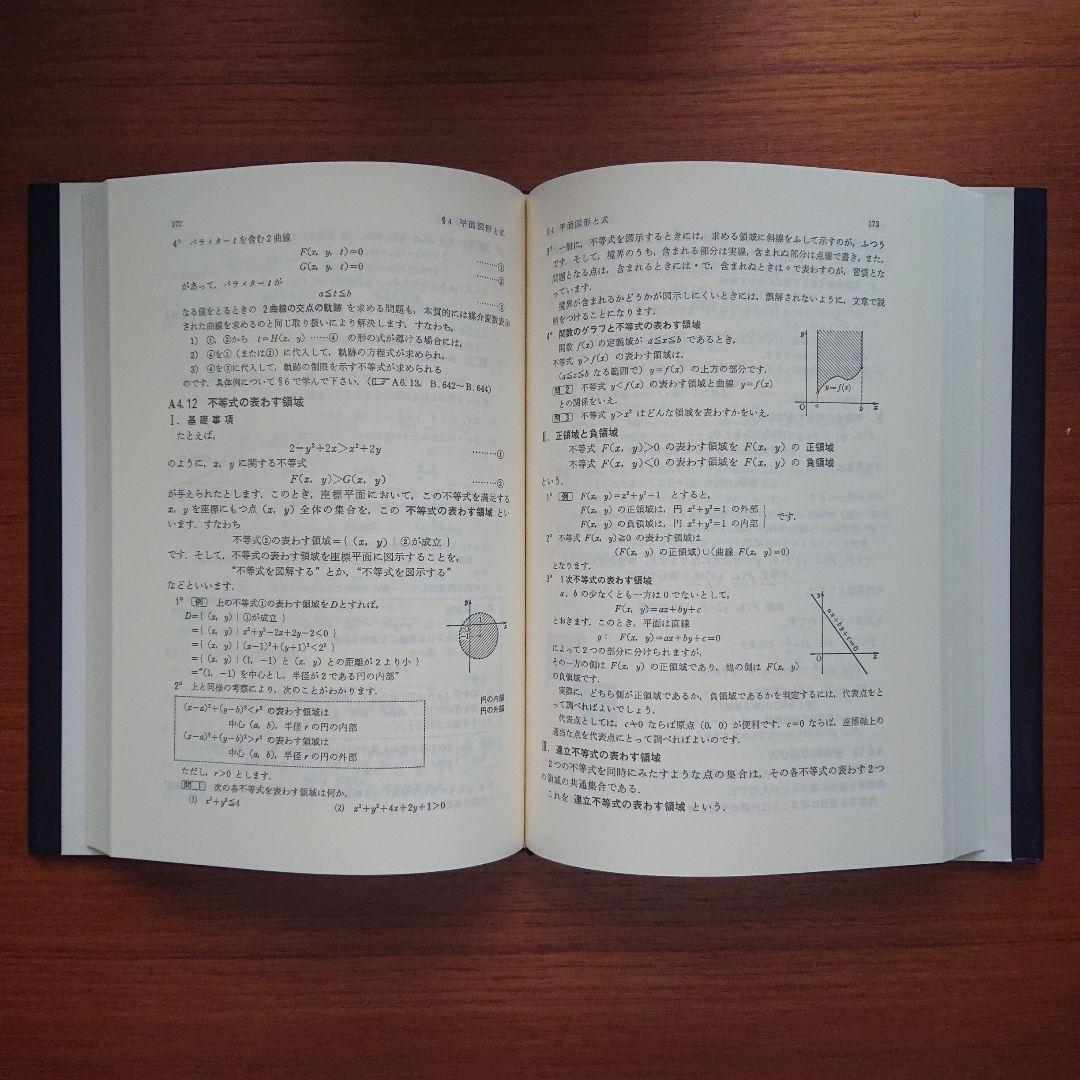 172
§4 平面図形と式
4° パラメター t を含む2曲線
F(x, y, t)=0 ………①
G(x, y, t)=0 ………②
があって，パラメター t が
a≦t≦b ………③
なる値をとるときの 2曲線の交点の軌跡 を求める問題も，本質的には媒介変数表示
された曲線を求めるのと同じ取り扱いにより解決します．すなわち，
1) ①，②から t=H(x, y) ……④ の形の式が導ける場合には，
2) ④を①(または②)に代入して，軌跡の方程式が求められ，
3) ④を③に代入して，軌跡の制限を示す不等式が求められる
のです．具体例について§6で学んで下さい．(☞ A6.13, B.642〜B.644)
A4.12 不等式の表わす領域
I．基礎事項
たとえば，
2−y²+2x>x²+2y ………①
のように，x, y に関する不等式
F(x, y)>G(x, y) ………②
が与えられたとします．このとき，座標平面において，この不等式を満足する
x, y を座標にもつ点 (x, y) 全体の集合を，この 不等式の表わす領域 とい
います．すなわち
不等式②の表わす領域={ (x, y) | ②が成立 }
です．そして，不等式の表わす領域を座標平面に図示することを，
“不等式を図解する” とか，“不等式を図示する”
などといいます．
1° 例 上の不等式①の表わす領域を D とすれば，
D={ (x, y) | ①が成立 }
={ (x, y) | x²+y²−2x+2y−2<0 }
={ (x, y) | (x−1)²+(y+1)²<2² }
={ (x, y) | (1, −1) と (x, y) との距離が2より小 }
=“(1, −1) を中心とし，半径が2である円の内部”
2° 上と同様の考察により，次のことがわかります．
(x−a)²+(y−b)²<r² の表わす領域は
中心 (a, b)，半径 r の円の内部
(x−a)²+(y−b)²>r² の表わす領域は
中心 (a, b)，半径 r の円の外部
円の内部
円の外部
ただし，r>0 とします．
問1 次の各不等式を表わす領域は何か．
(1) x²+y²≦4 (2) x²+y²+4x+2y+1>0
§4 平面図形と式
173
3° 一般に，不等式を図示するときには，求める領域に斜線をふして示すのが，ふつう
です．そして，境界のうち，含まれる部分は実線，含まれぬ部分は点線で書き，また，
問題となる点は，含まれるときには • で，含まれぬときは ∘ で表わすのが，習慣とな
っています．
境界が含まれるかどうかが図示しにくいときには，誤解されないように，文章で説
明をつけることになります．
4° 関数のグラフと不等式の表わす領域
関数 f(x) の定義域が a≦x≦b であるとき，
不等式 y>f(x) の表わす領域は，
(a≦x≦b なる範囲で) y=f(x) の上方の部分です．
問2 不等式 y<f(x) の表わす領域と曲線 y=f(x)
との関係をいえ．
問3 不等式 y>x² はどんな領域を表わすかをいえ．
y
y=f(x)
b
x
II．正領域と負領域
不等式 F(x, y)>0 の表わす領域を F(x, y) の 正領域
不等式 F(x, y)<0 の表わす領域を F(x, y) の 負領域
という．
1° 例 F(x, y)=x²+y²−1 とすると，
F(x, y) の正領域は，円 x²+y²=1 の外部
F(x, y) の負領域は，円 x²+y²=1 の内部
です．
2° 不等式 F(x, y)≧0 の表わす領域は
(F(x, y) の正領域)∪(曲線 F(x, y)=0)
となります．
3° 1次不等式の表わす領域
a, b の少なくとも一方は0でないとして，
F(x, y)=ax+by+c
とおきます．このとき，平面は直線
g: F(x, y)=ax+by+c=0
によって2つの部分に分けられますが，
その一方の側は F(x, y) の正領域であり，他の側は F(x, y)
の負領域です．
y
ax+by+c=0
x
実際に，どちら側が正領域であるか，負領域であるかを判定するには，代表点をと
って調べればよいでしょう．
代表点としては，c≠0 ならば原点 (0, 0) が便利です．c=0 ならば，座標軸上の
適当な点を代表点にとって調べればよいのです．
III．連立不等式の表わす領域
2つの不等式を同時にみたすような点の集合は，その各不等式の表わす2つ
の領域の共通集合である．
これを 連立不等式の表わす領域 という．